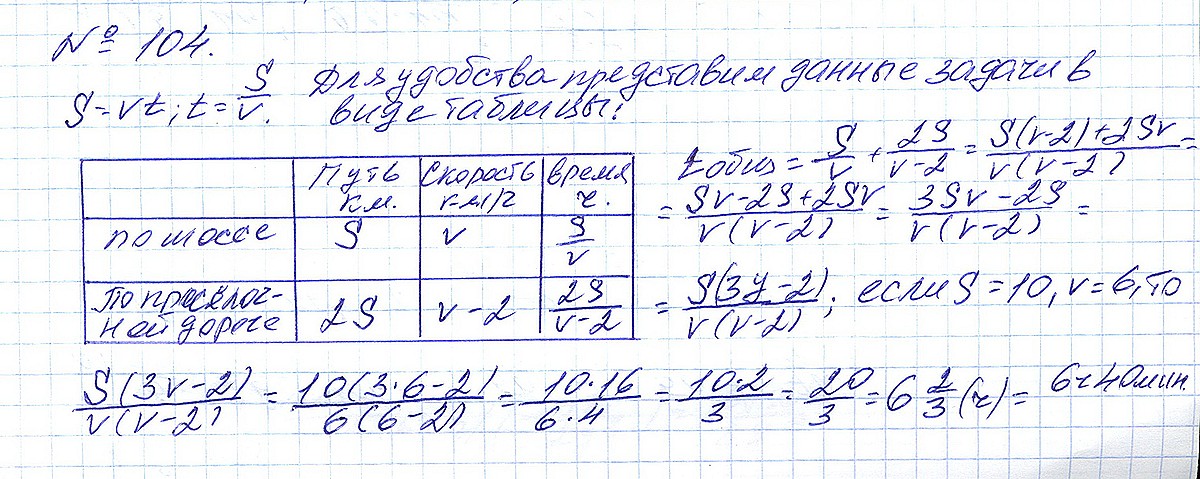 № 104.
S = vt; t = S/v. Для удобства представим данные задачи в
виде таблицы:
Путь км. | Скорость км/ч | время ч.
по шоссе | S | v | S/v
По просёлочной дороге | 2S | v-2 | 2S/(v-2)
t общ = S/v + 2S/(v-2) = (S(v-2)+2Sv)/(v(v-2)) =
= (Sv-2S+2Sv)/(v(v-2)) = (3Sv-2S)/(v(v-2)) =
= S(3y-2)/(v(v-2)); если S = 10, v = 6, то
S(3v-2)/(v(v-2)) = 10(3·6-2)/(6(6-2)) = (10·16)/(6·4) = (10·2)/3 = 20/3 = 6 2/3 (ч) = 6ч 40мин